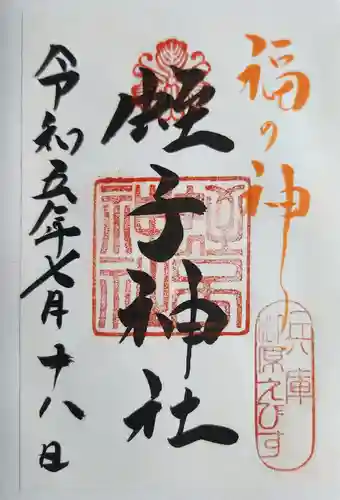 福の神
兵庫
柳原えびす
蛭子神社
令和五年七月十八日